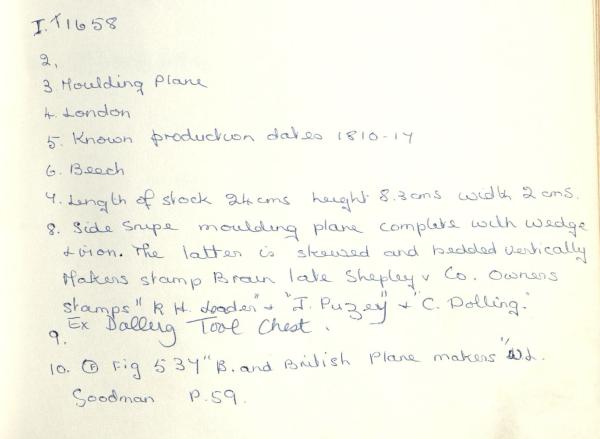 I. T1658
2,
3 Moulding Plane
4. London
5. Known production dates 1810-17
6. Beech
7. Length of stock 24cms height 8.3cms width 2cms.
8. Side Snipe moulding plane complete with wedge
& iron. The latter is skewed and bedded vertically
Makers stamp Brain late Shepley & Co. Owners
stamps " R H. Loader" & "J. Puzey" & "C. Dolling."
Ex Dalling Tool Chest.
9.
10. Fig 537 "B. and British Plane makers" W.L.
Goodman P.59.